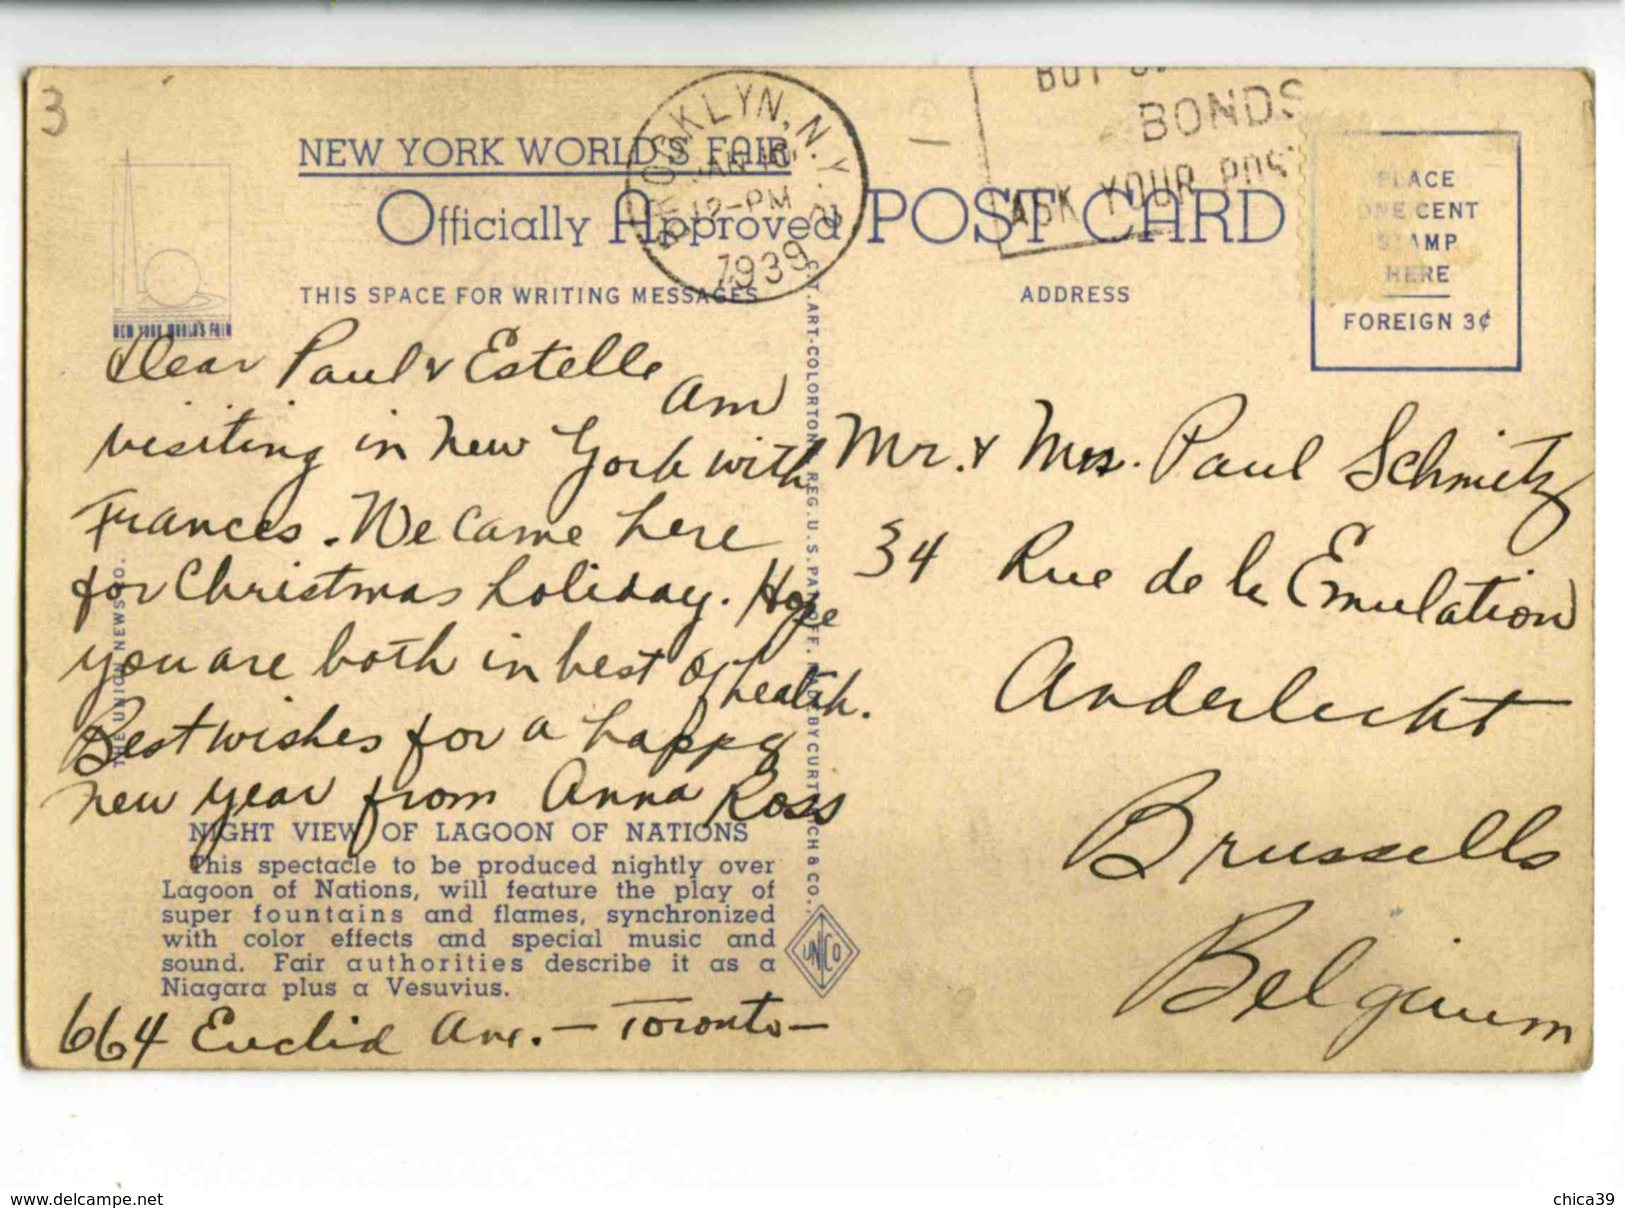 3
NEW YORK WORLD'S FAIR
Officially Approved POST CARD
BROOKLYN, N.Y.
12-PM
1939
BONDS
ASK YOUR POST
PLACE
ONE CENT
STAMP
HERE
FOREIGN 3¢
NEW YORK WORLD'S FAIR
THIS SPACE FOR WRITING MESSAGES
ADDRESS
Dear Paul & Estelle
am
visiting in New York with
Frances. We came here
for Christmas holiday. Hope
you are both in best of health.
Best wishes for a happy
new year from Anna Ross
NIGHT VIEW OF LAGOON OF NATIONS
This spectacle to be produced nightly over
Lagoon of Nations, will feature the play of
super fountains and flames, synchronized
with color effects and special music and
sound. Fair authorities describe it as a
Niagara plus a Vesuvius.
664 Euclid Ave. — Toronto —
THE UNION NEWS CO.
C.T. ART-COLORTONE REG. U.S. PAT. OFF. BY CURT TEICH & CO.
UNCO
Mr. & Mrs. Paul Schmitz
34 Rue de la Emulation
Anderlecht
Brussells
Belgium
www.delcampe.net
chica39